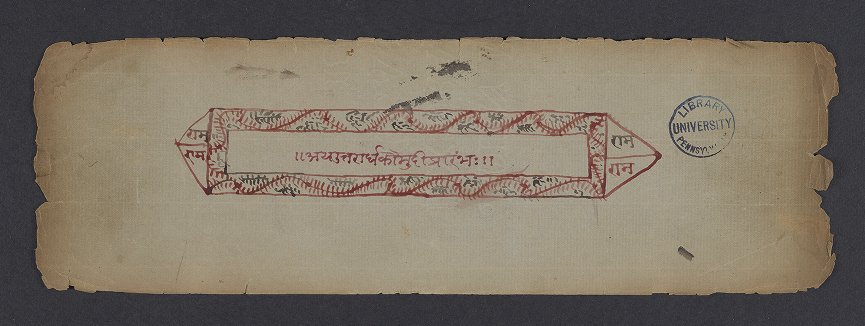 राम
राम
॥अथउत्तरार्धकौमुदीप्रारंभः॥
राम
राम
LIBRARY
UNIVERSITY
PENNSYL